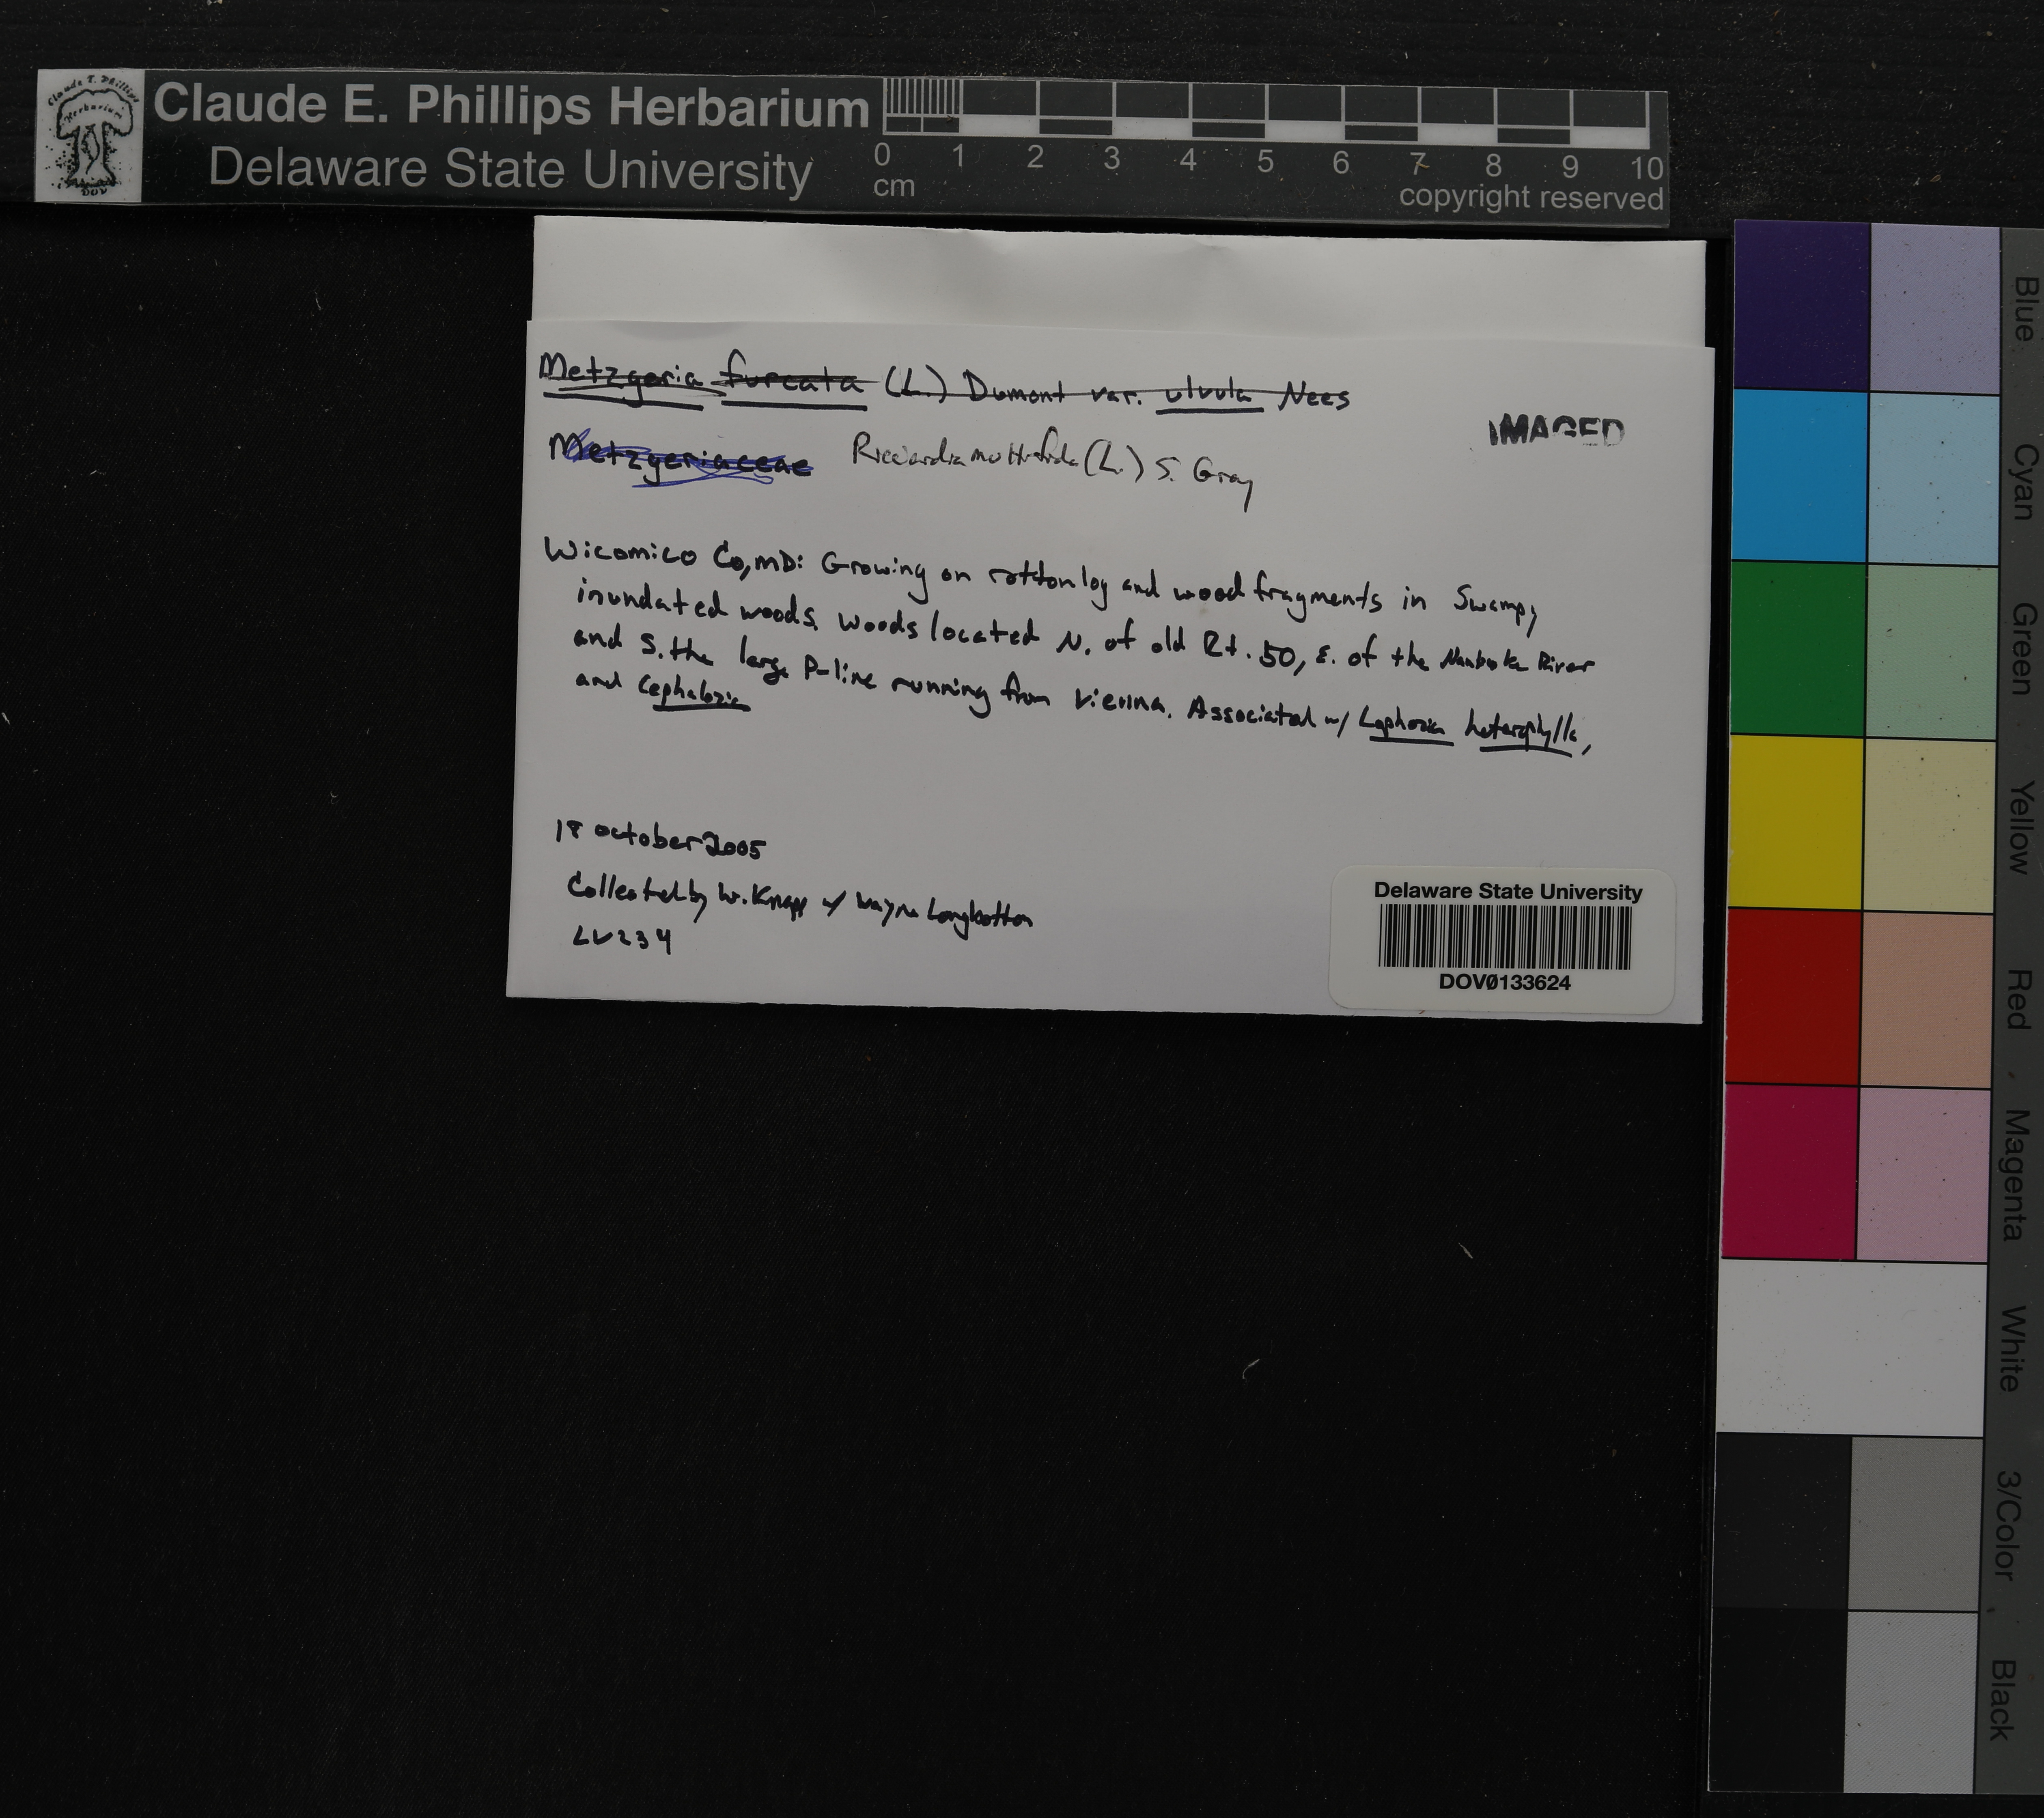 Claude E. Phillips Herbarium
Delaware State University
0 1 2 3 4 5 6 7 8 9 10
cm
copyright reserved
Metzgeria furcata (L.) Dumont var. ulvula Nees
Metzgeriaceae Riccardia multifida (L.) S. Gray
IMAGED
Wicomico Co, MD: Growing on rotton log and wood fragments in Swampy
inundated woods. Woods located N. of old Rt. 50, E. of the River
and S. the large P-line running from Vienna. Associated w/ Lophozia heterophylla,
and Cephalozia
18 October 2005
Collected by W. Knapp w/ Wayne Longbottom
LV234
Delaware State University
DOV0133624
Blue
Cyan
Green
Yellow
Red
Magenta
White
3/Color
Black